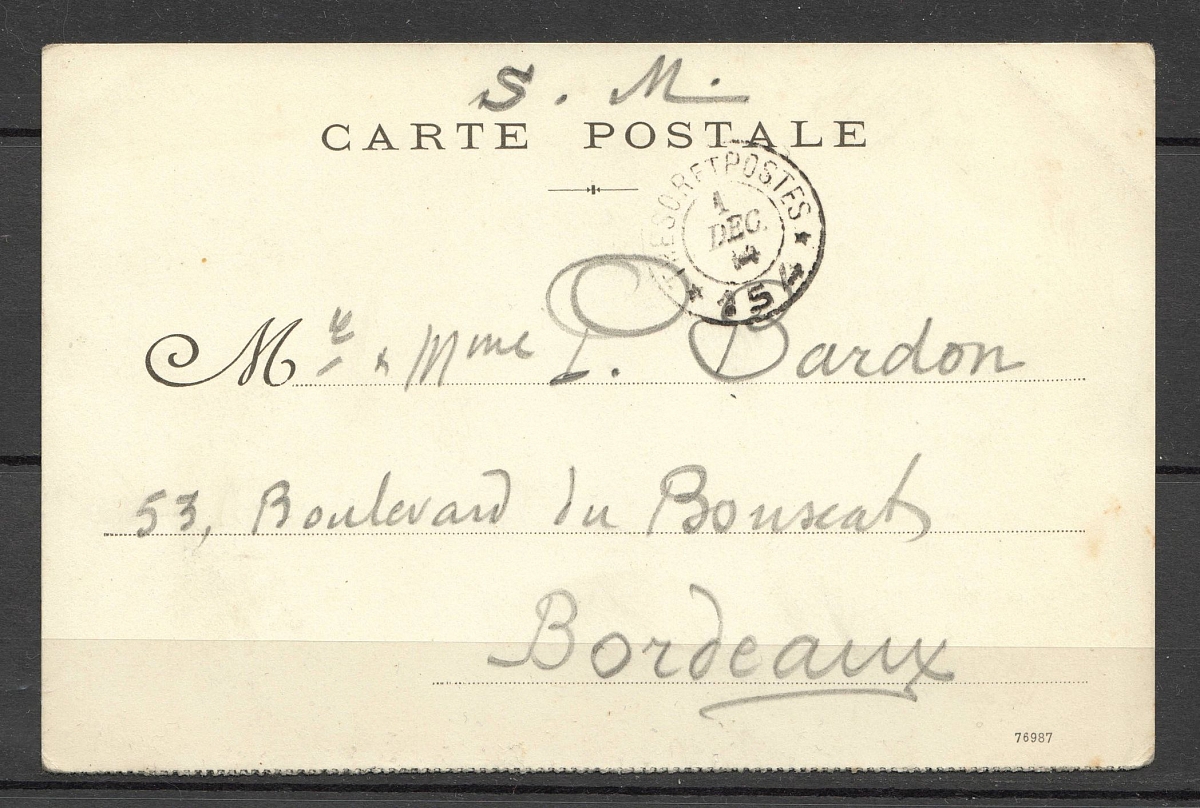 S. M.
CARTE POSTALE
TRESOR ET POSTES
1
DEC.
14
* 154 *
Mr & Mme P. Dardon
53, Boulevard du Bouscat
Bordeaux
76987